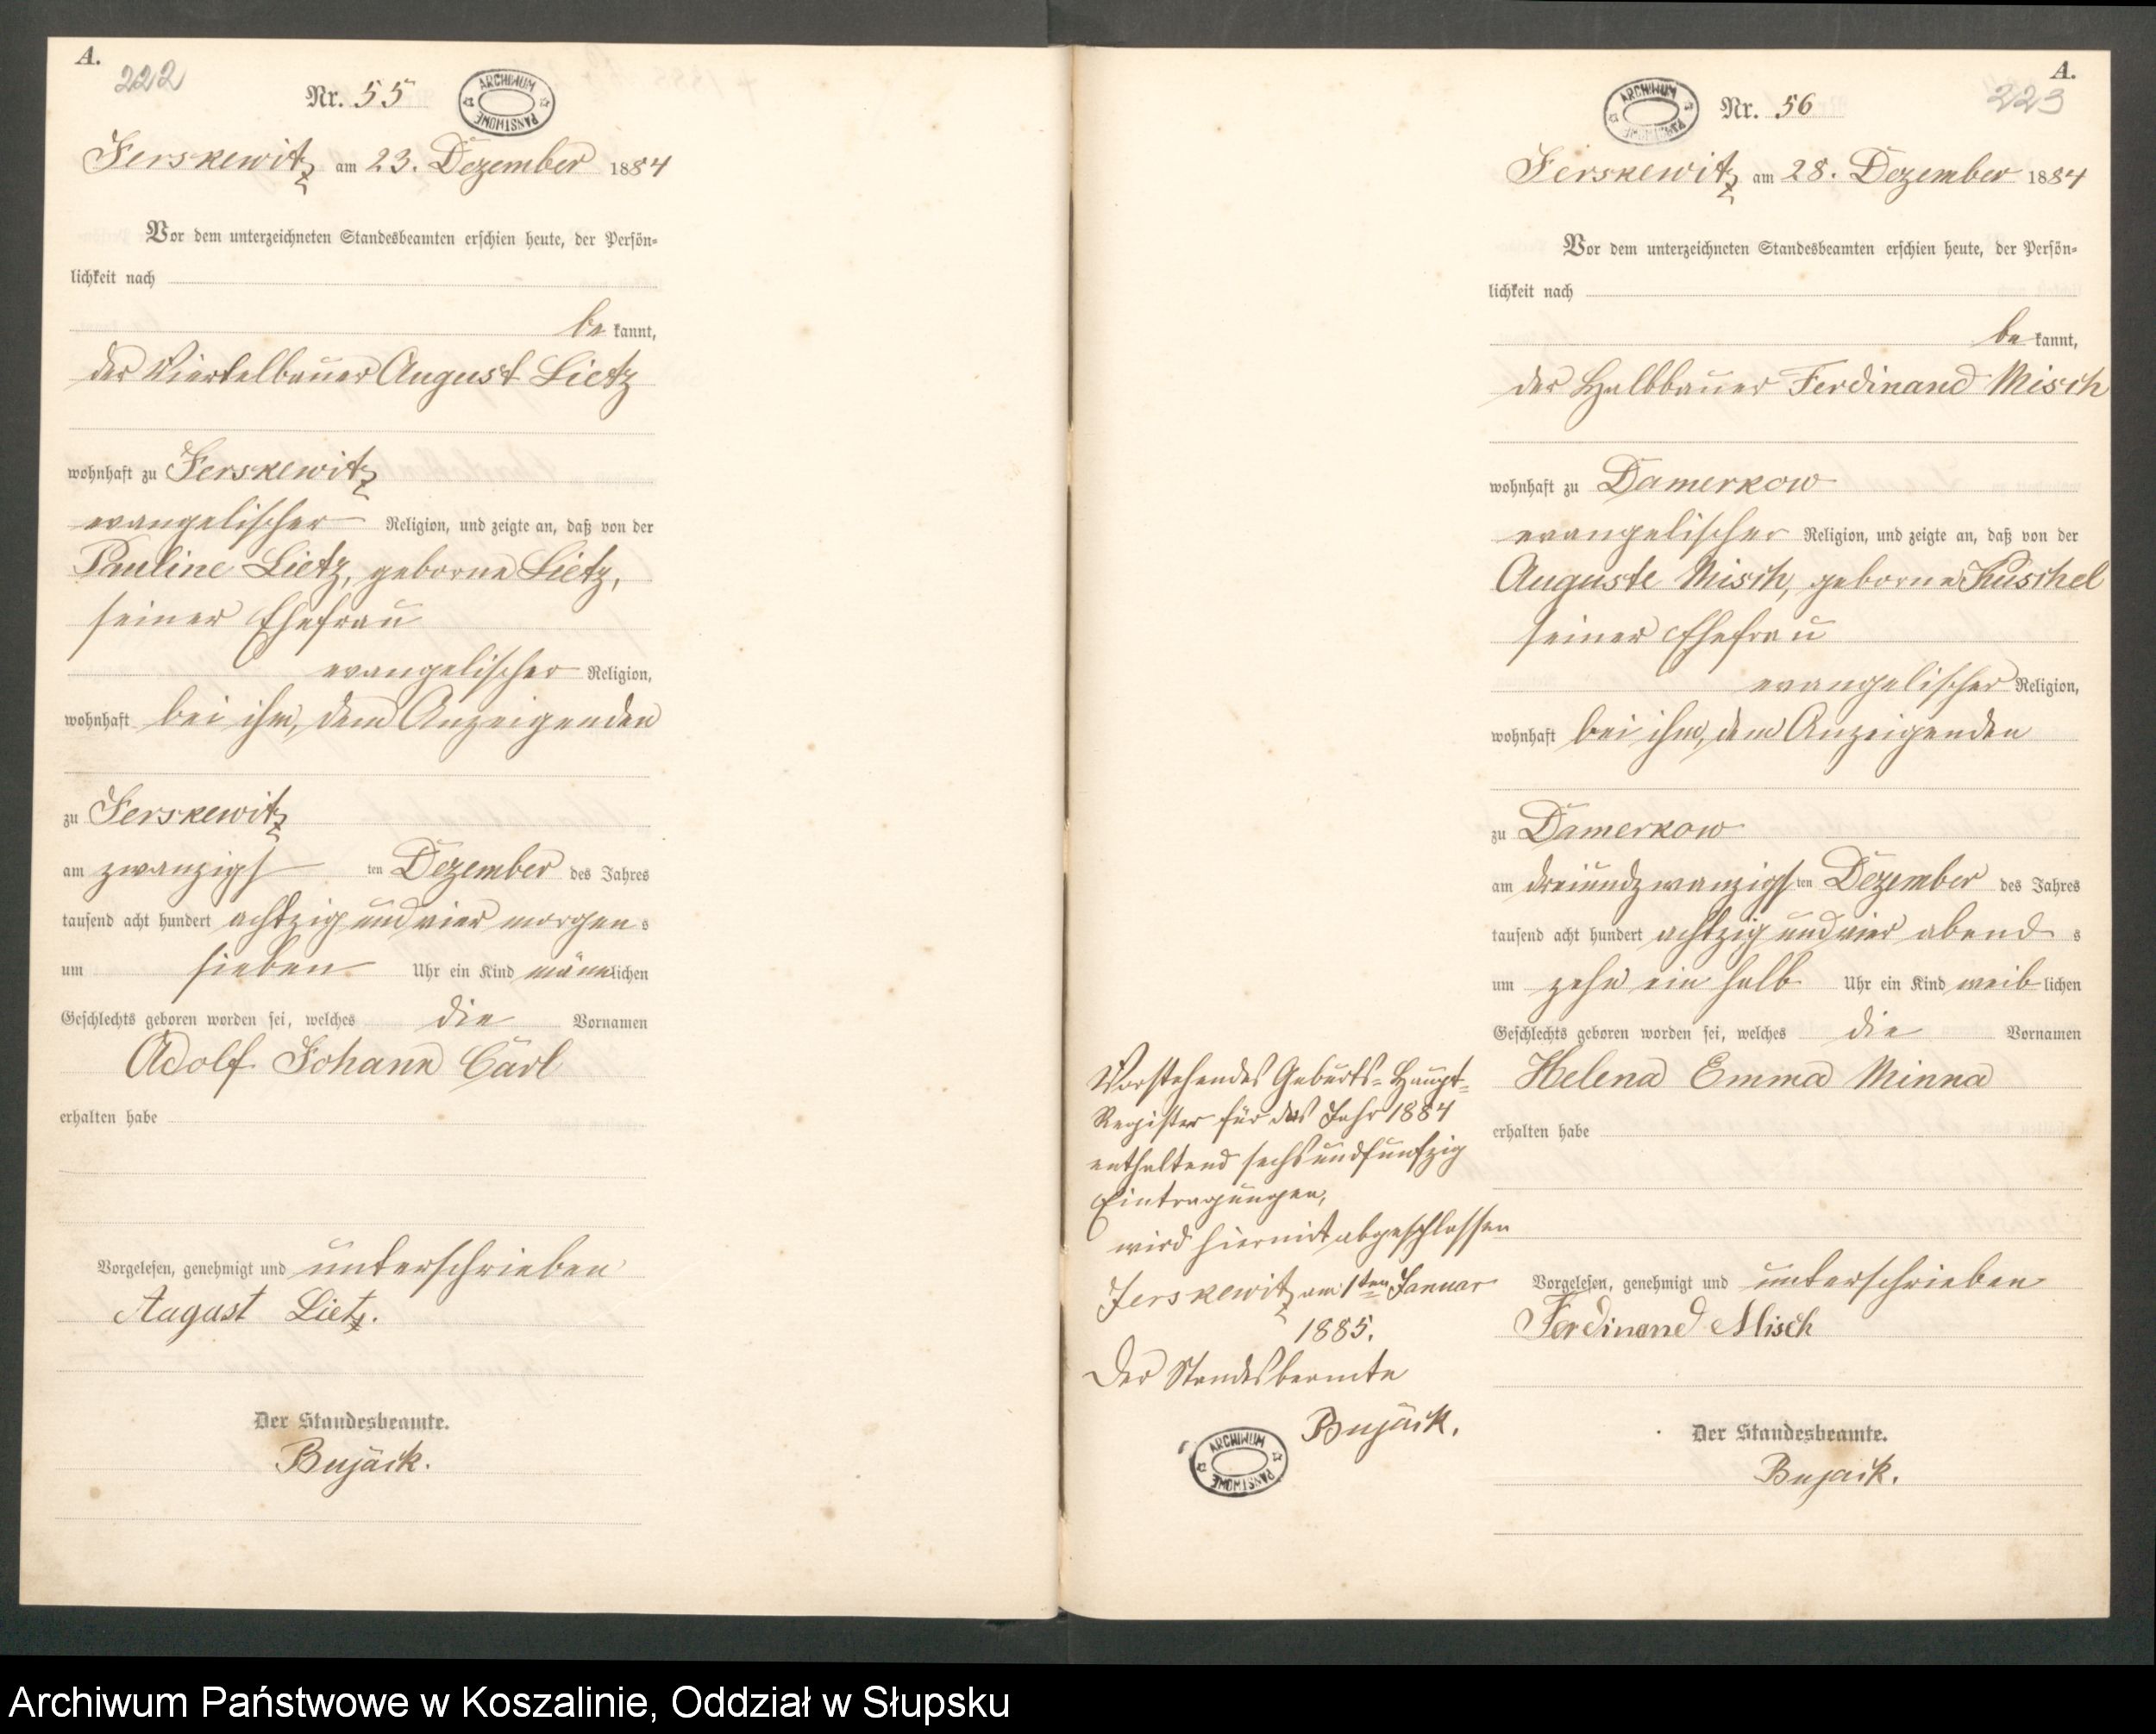 A.
222
Nr. 55
ARCHIWUM PAŃSTWOWE
Jerskewitz am 23. Dezember 1884
Vor dem unterzeichneten Standesbeamten erschien heute, der Persön-
lichkeit nach
be kannt,
der Viertelbauer August Lietz
wohnhaft zu Jerskewitz
evangelischer Religion, und zeigte an, daß von der
Pauline Lietz, geborne Lietz,
seiner Ehefrau
evangelischer Religion,
wohnhaft bei ihm, dem Anzeigenden
zu Jerskewitz
am zwanzigsten Dezember des Jahres
tausend acht hundert achtzig und vier morgens
um sieben Uhr ein Kind männlichen
Geschlechts geboren worden sei, welches die Vornamen
Adolf Johann Carl
erhalten habe
Vorgelesen, genehmigt und unterschrieben
August Lietz.
Der Standesbeamte.
Bujack.
A.
223
ARCHIWUM PAŃSTWOWE
Nr. 56
Jerskewitz am 28. Dezember 1884
Vor dem unterzeichneten Standesbeamten erschien heute, der Persön-
lichkeit nach
be kannt,
der Halbbauer Ferdinand Misch
wohnhaft zu Damerkow
evangelischer Religion, und zeigte an, daß von der
Auguste Misch, geborne Kuschel
seiner Ehefrau
evangelischer Religion,
wohnhaft bei ihm, dem Anzeigenden
zu Damerkow
am dreiundzwanzigsten Dezember des Jahres
tausend acht hundert achtzig und vier abends
um zehn ein halb Uhr ein Kind weiblichen
Geschlechts geboren worden sei, welches die Vornamen
Helena Emma Minna
erhalten habe
Vorgelesen, genehmigt und unterschrieben
Ferdinand Misch
Der Standesbeamte.
Bujack.
Vorstehendes Geburts-Haupt-
Register für das Jahr 1884
enthaltend sechsundfunfzig
Eintragungen,
wird hiermit abgeschlossen
Jerskewitz am 1ten Januar
1885.
Der Standesbeamte
Bujack.
ARCHIWUM PAŃSTWOWE
Archiwum Państwowe w Koszalinie, Oddział w Słupsku